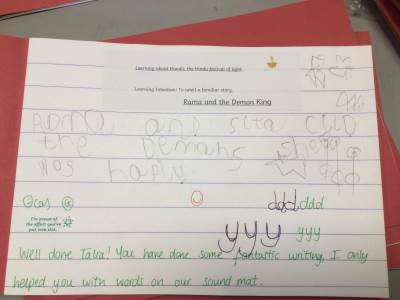 Learning about Diwali, the Hindu festival of light.
Learning Intention: To retell a familiar story.
Rama and the Demon King
Rama and sita cild
the Demans she
was hapiy
ddd ddd
I'm proud of
the effort you've
put into this.
yyy yyy
Well done Talia! You have done some fantastic writing, I only
helped you with words on our sound mat.